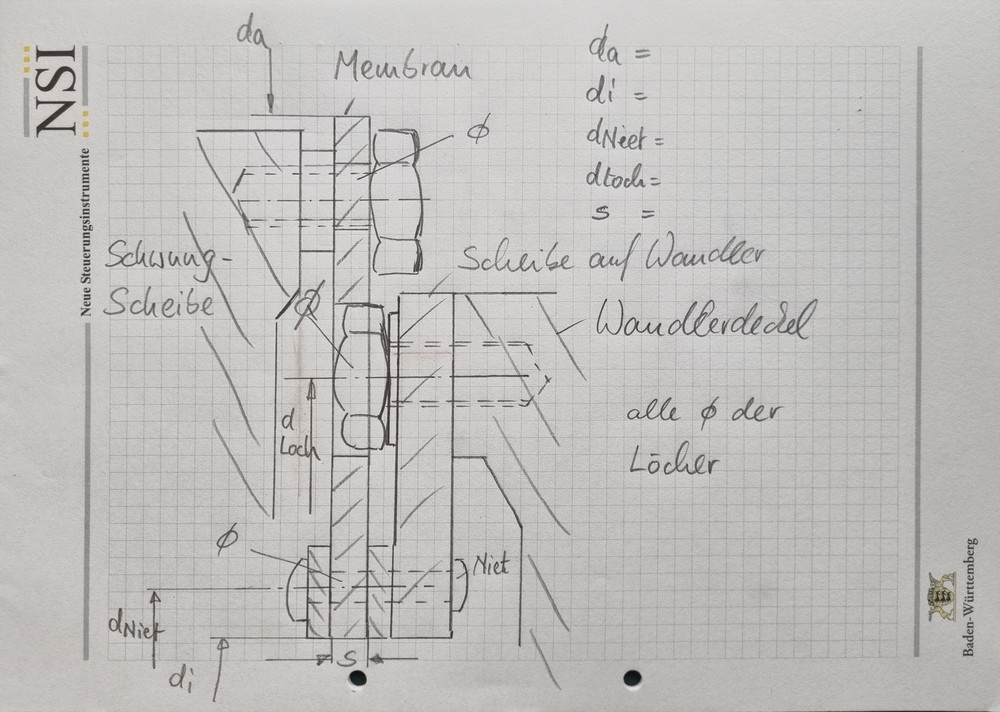 NSI
Neue Steuerungsinstrumente
da
Membran
ϕ
da =
di =
dNiet =
dLoch =
s =
Schwung-
Scheibe
ϕ
Scheibe auf Wandler
Wandlerdeckel
alle ϕ der
Löcher
d
Loch
ϕ
Niet
dNiet
di
s
Baden-Württemberg